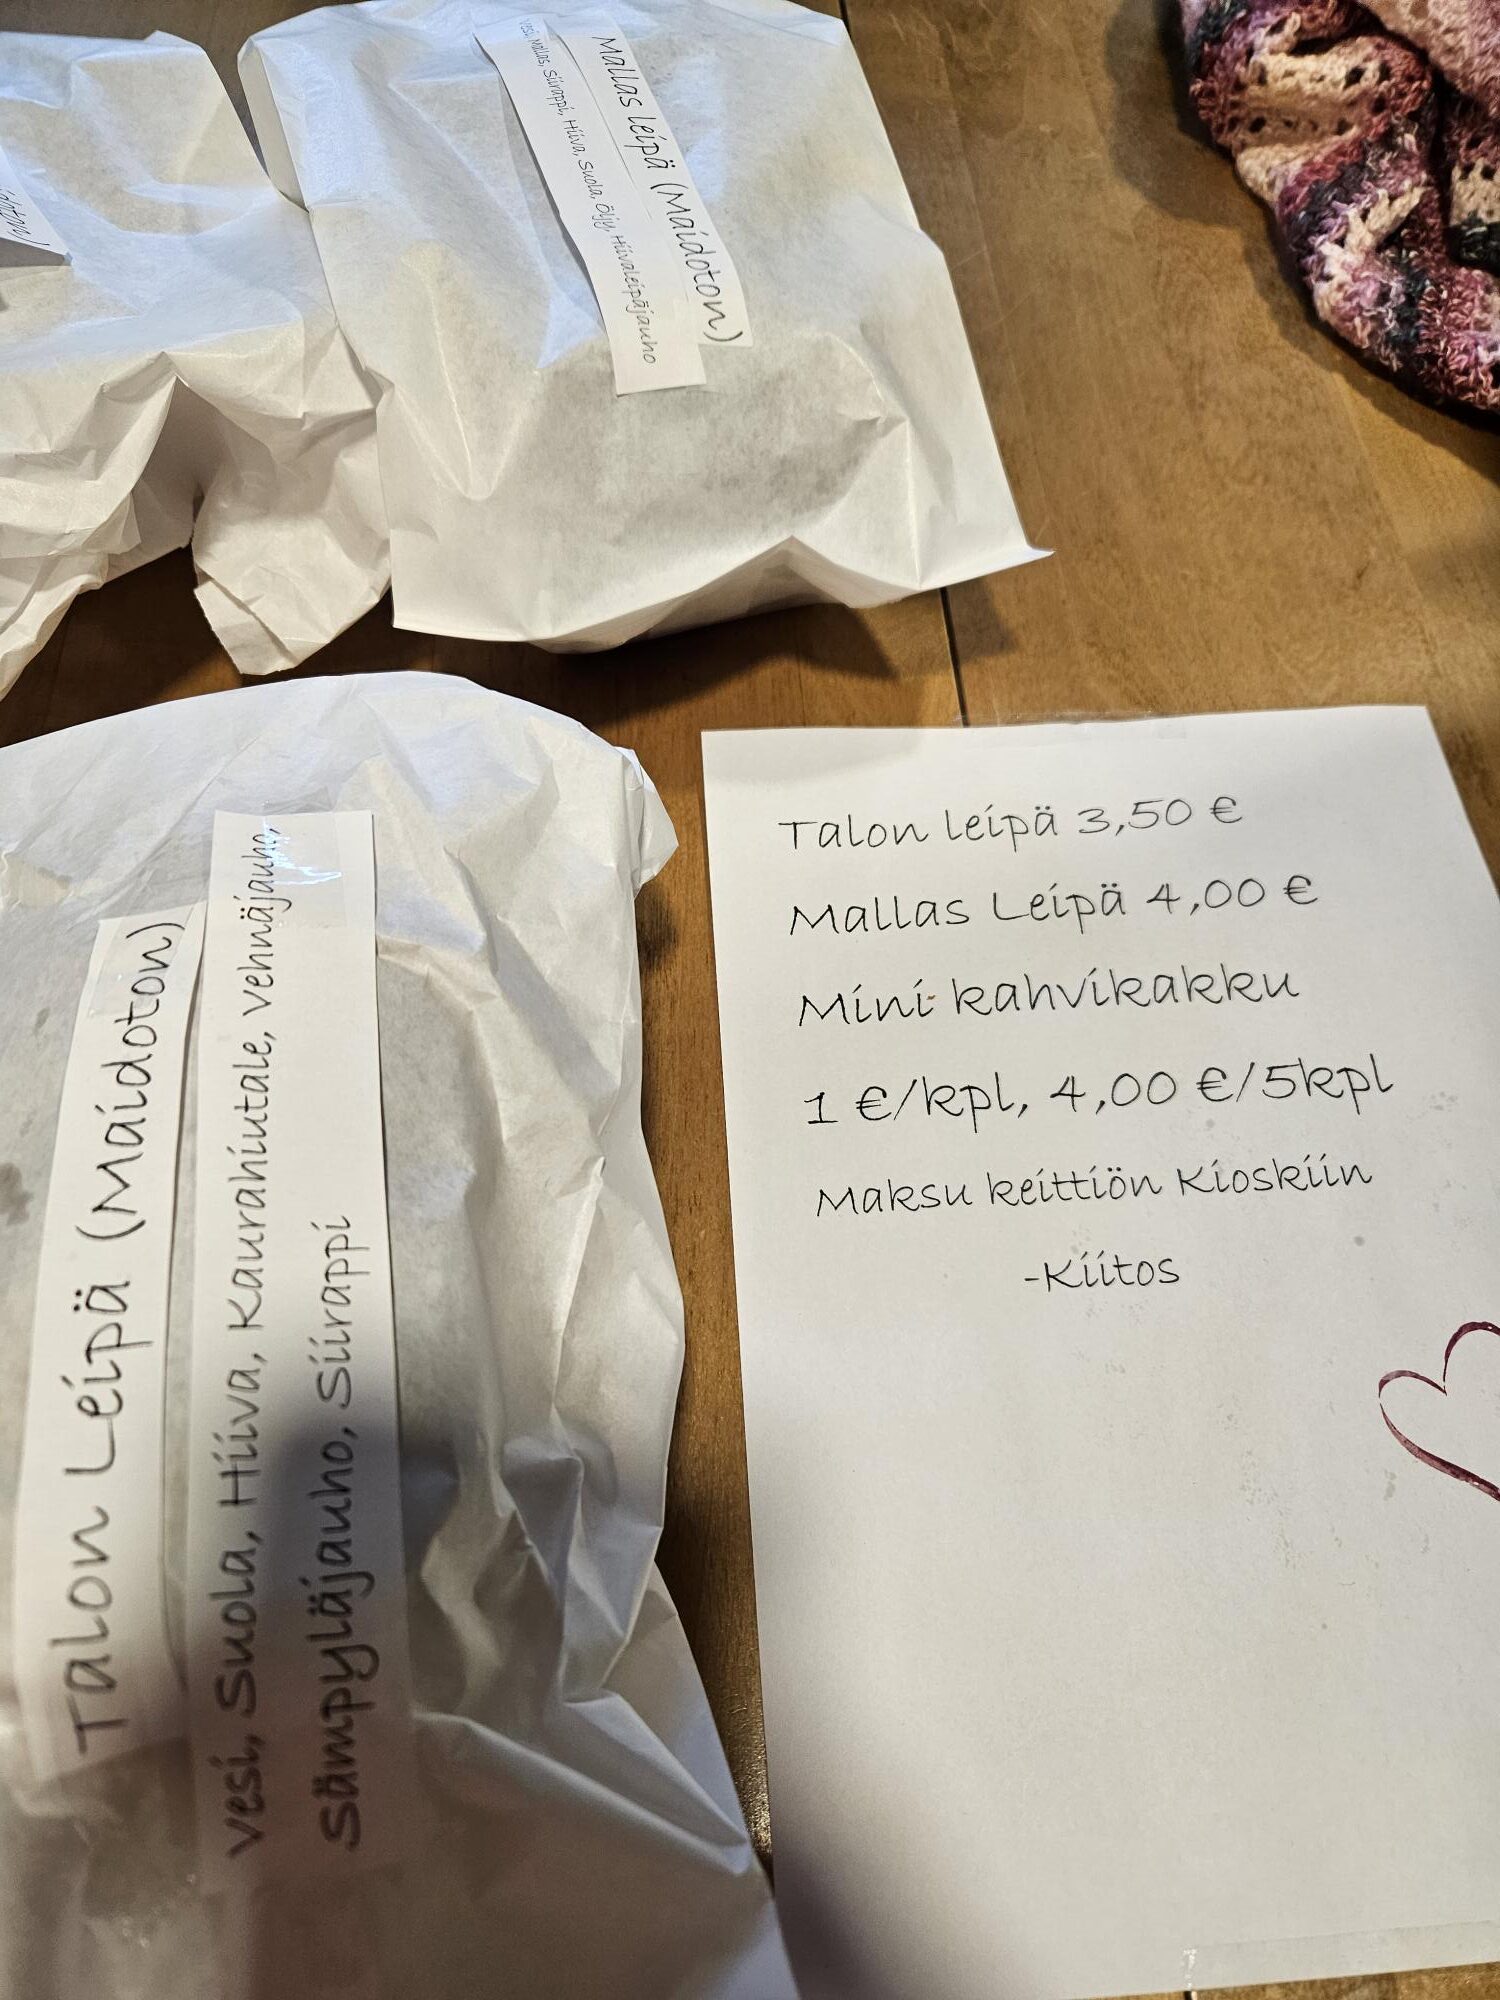 Mallas leipä (Maidoton)
Vesi, Mallas, Siirappi, Hiiva, Suola, Öljy, Hiivaleipäjauho
Talon Leipä (Maidoton)
Vesi, Suola, Hiiva, Kaurahiutale, vehnäjauho,
Sämpyläjauho, Siirappi
Talon leipä 3,50 €
Mallas Leipä 4,00 €
Mini kahvikakku
1 €/kpl, 4,00 €/5kpl
Maksu keittiön Kioskiin
-Kiitos